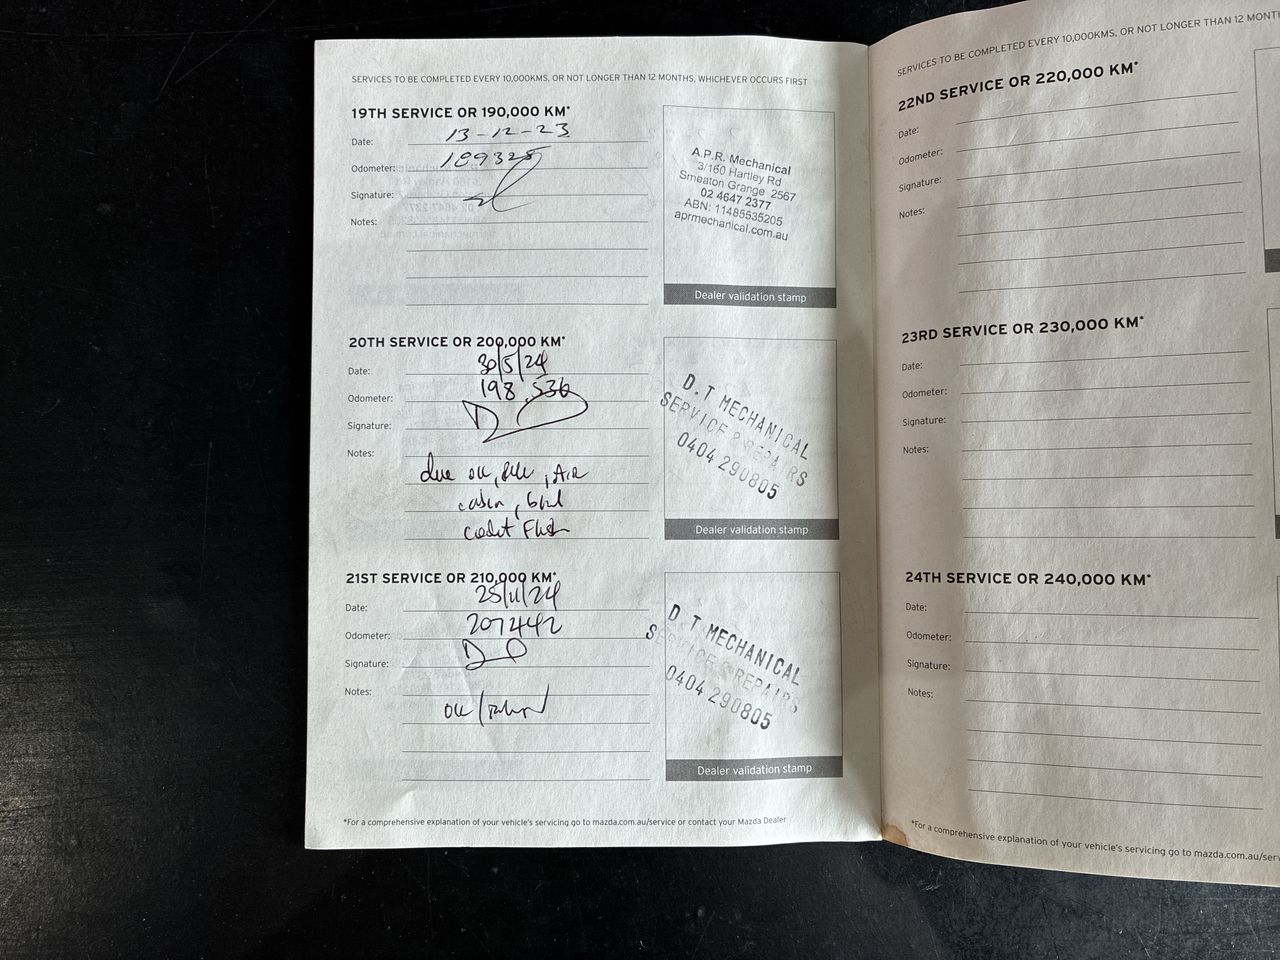 SERVICES TO BE COMPLETED EVERY 10,000KMS, OR NOT LONGER THAN 12 MONTHS, WHICHEVER OCCURS FIRST
19TH SERVICE OR 190,000 KM*
Date: 13-12-23
Odometer: 189325
Signature:
Notes:
A.P.R. Mechanical
3/160 Hartley Rd
Smeaton Grange 2567
02 4647 2377
ABN: 11485535205
aprmechanical.com.au
Dealer validation stamp
20TH SERVICE OR 200,000 KM*
Date: 30/5/24
Odometer: 198,536
Signature:
Notes:
Air
cabin,
D.T MECHANICAL
SERVICE & REPAIRS
0404 290805
Dealer validation stamp
21ST SERVICE OR 210,000 KM*
Date: 25/11/24
Odometer: 207442
Signature:
Notes:
D T MECHANICAL
SERVICE & REPAIRS
0404 290805
Dealer validation stamp
*For a comprehensive explanation of your vehicle's servicing go to mazda.com.au/service or contact your Mazda Dealer
SERVICES TO BE COMPLETED EVERY 10,000KMS, OR NOT LONGER THAN 12
22ND SERVICE OR 220,000 KM*
Date:
Odometer:
Signature:
Notes:
23RD SERVICE OR 230,000 KM*
Date:
Odometer:
Signature:
Notes:
24TH SERVICE OR 240,000 KM*
Date:
Odometer:
Signature:
Notes:
*For a comprehensive explanation of your vehicle's servicing go to